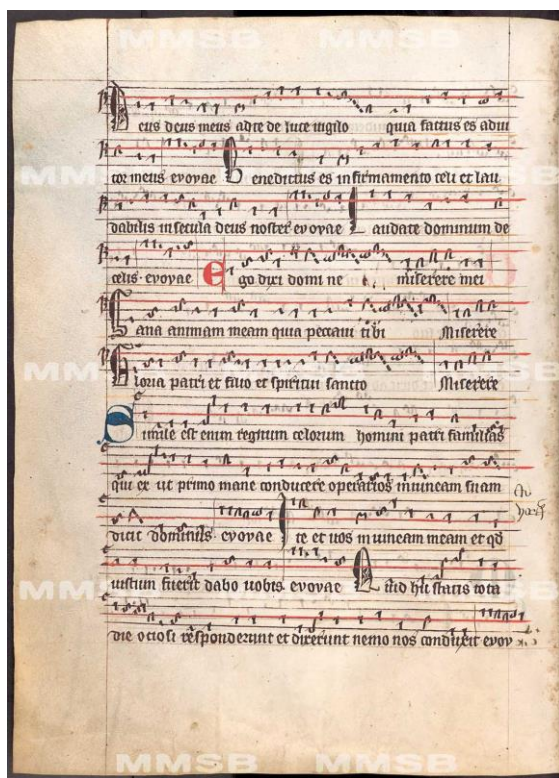 MMSB MMSB
Deus deus meus ad te de luce uigilo quia factus es adiu
tor meus evovae Benedictus es in firmamento celi et lau
MMSB MMSB
dabilis in secula deus noster evovae Laudate dominum de
celis evovae ego dixi domine miserere mei
Sana animam meam quia peccaui tibi Miserere
MMSB MMSB
Gloria patri et filio et spiritui sancto Miserere
Simile est enim regnum celorum homini patri familias
qui exiit primo mane conducere operarios in uineam suam
dicit dominus evovae Ite et uos in uineam meam et qd
iustum fuerit dabo uobis evovae Quid hic statis tota
MMSB MMSB
die ociosi responderunt et dixerunt nemo nos conduxit evov
MMSB MMSB